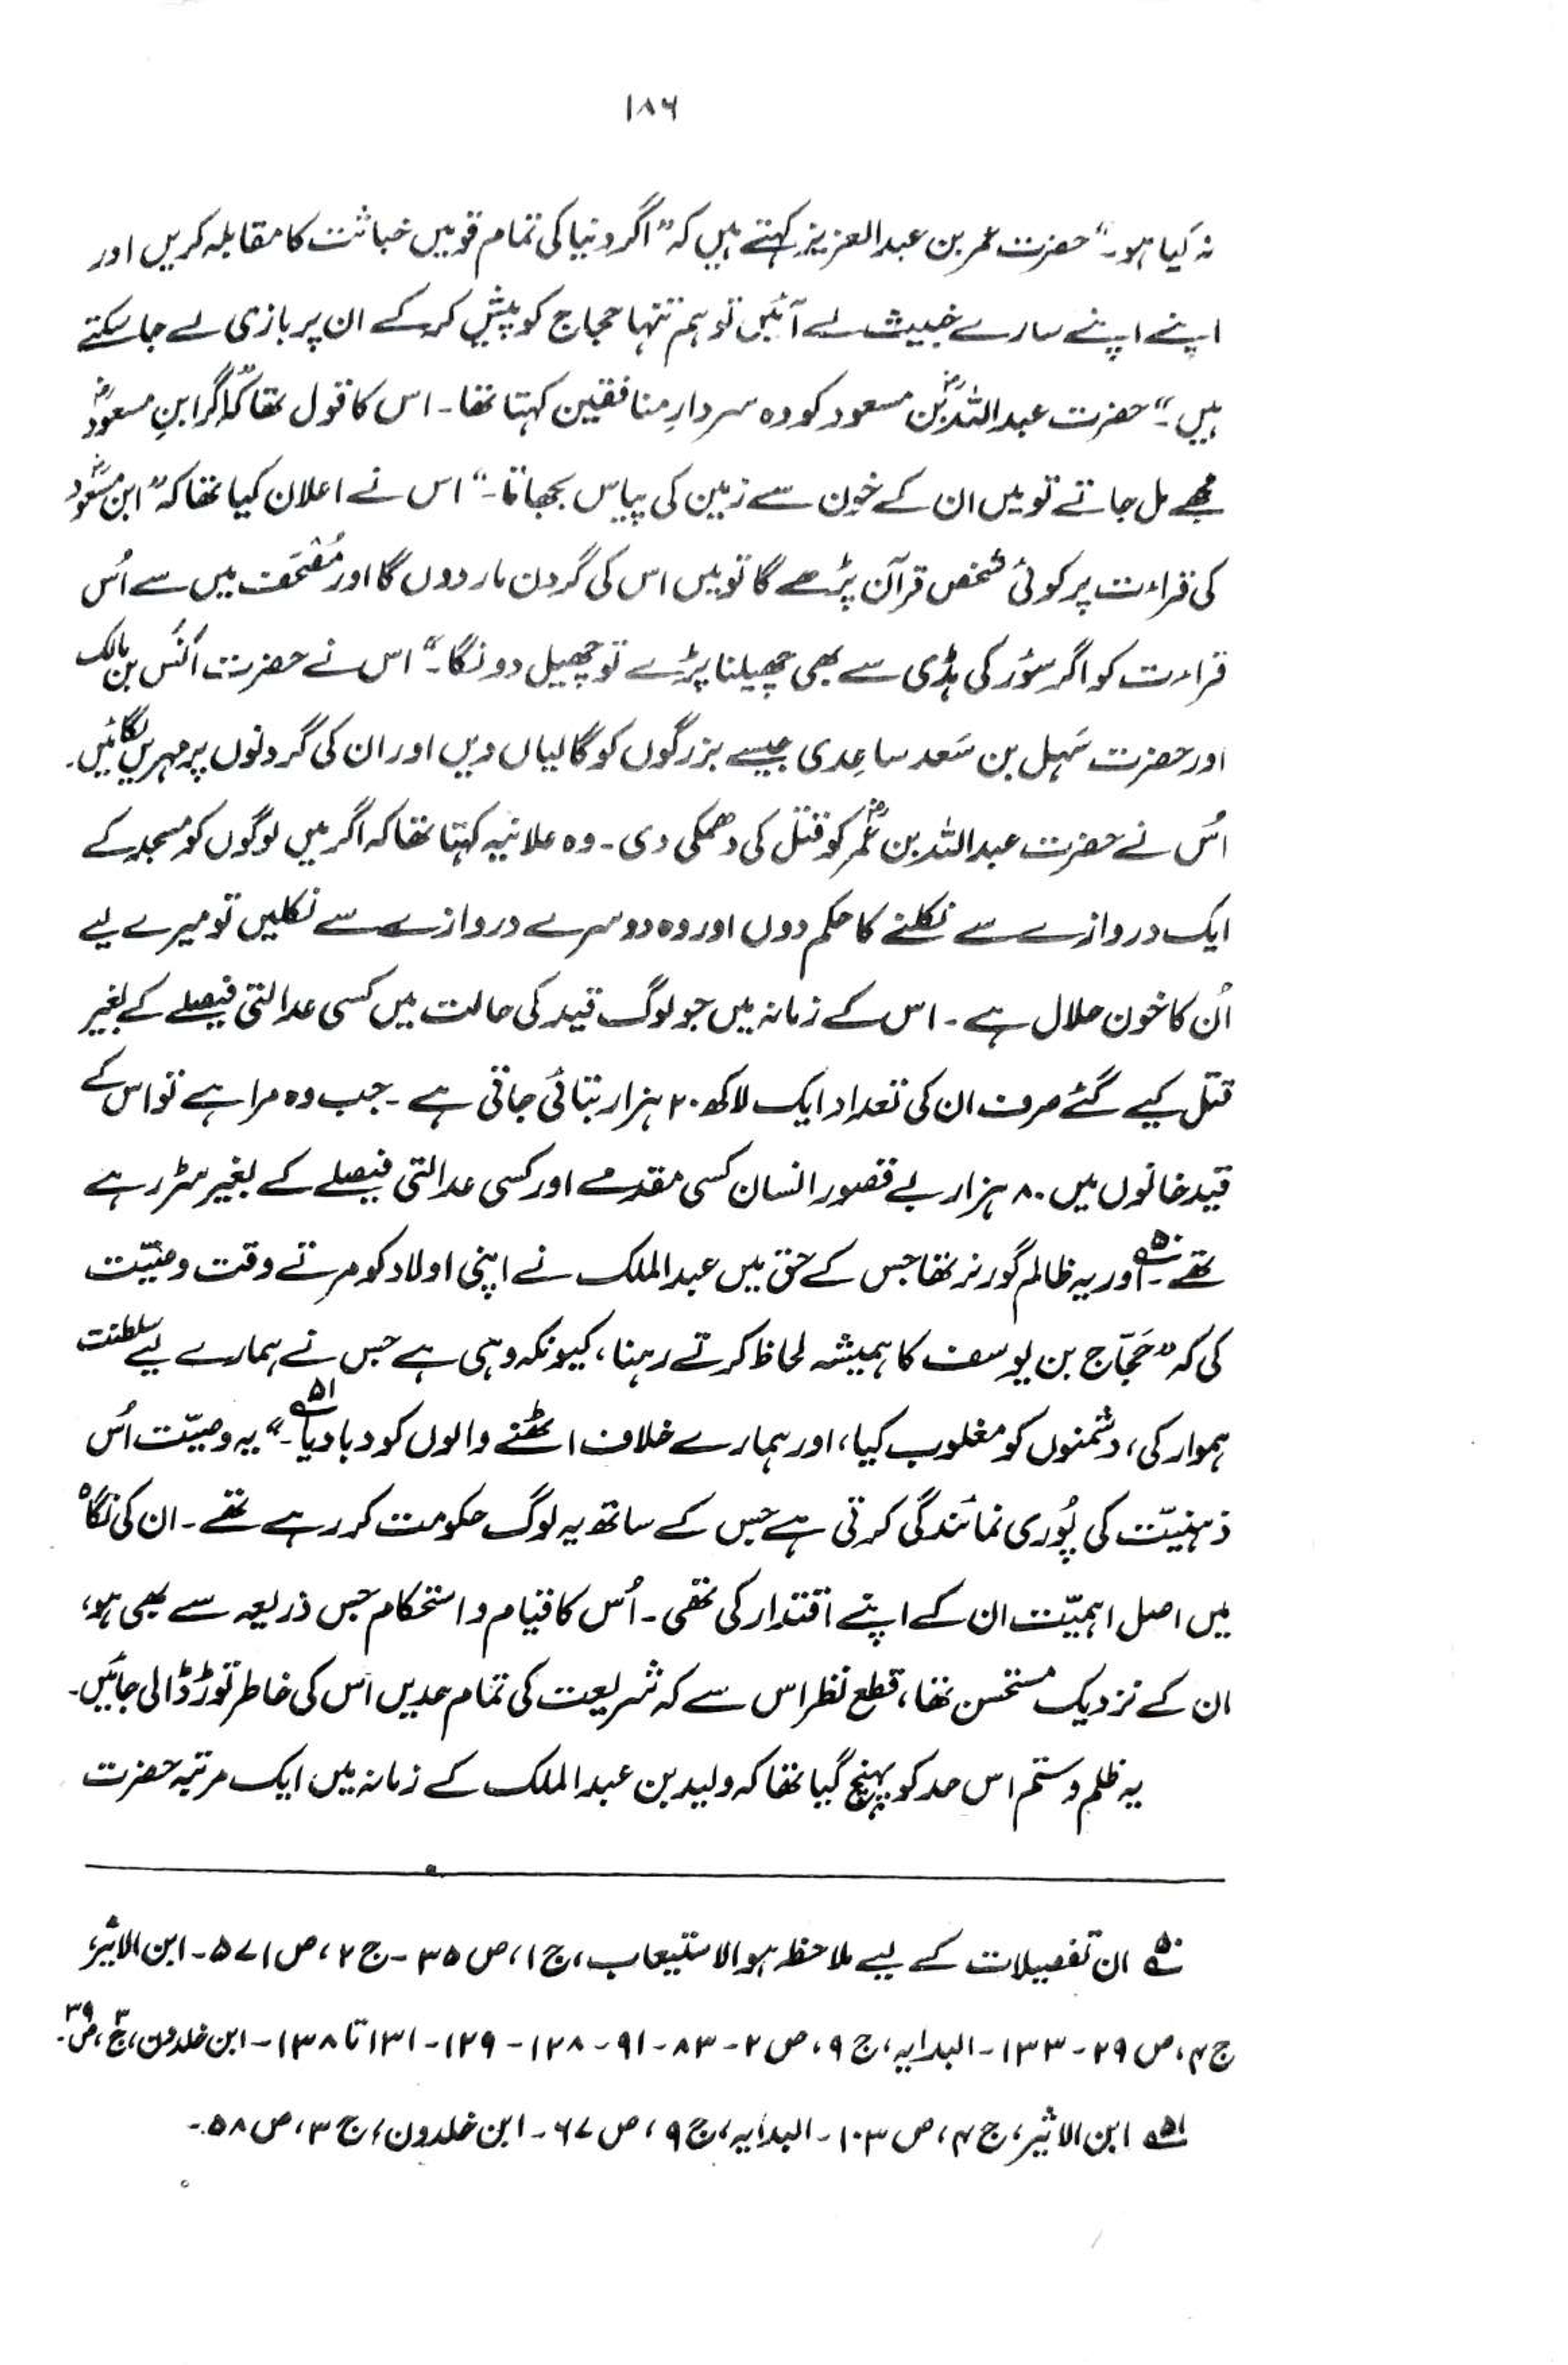 ۱۸۶
نہ کیا ہو۔“ حضرت عمر بن عبدالعزیز کہتے ہیں کہ ”اگر دنیا کی تمام قومیں خباثت کا مقابلہ کریں اور
اپنے اپنے سارے خبیث لے آئیں تو ہم تنہا حجاج کو پیش کر کے ان پر بازی لے جا سکتے
ہیں۔“ حضرت عبداللہؓ بن مسعود کو وہ سردارِ منافقین کہتا تھا۔ اس کا قول تھا کہ ”اگر ابنِ مسعودؓ
مجھے مل جاتے تو میں ان کے خون سے زمین کی پیاس بجھاتا۔“ اس نے اعلان کیا تھا کہ ”ابن مسعودؓ
کی قراءت پر کوئی شخص قرآن پڑھے گا تو میں اس کی گردن مار دوں گا اور مُصْحَف میں سے اُس
قراءت کو اگر سؤر کی ہڈی سے بھی چھیلنا پڑے تو چھیل دونگا۔“ اس نے حضرت اَنَس بن مالک
اور حضرت سَہل بن سَعد ساعِدی جیسے بزرگوں کو گالیاں دیں اور ان کی گردنوں پر مہریں لگائیں۔
اُس نے حضرت عبداللہ بن عُمرؓ کو قتل کی دھمکی دی۔ وہ علانیہ کہتا تھا کہ اگر میں لوگوں کو مسجد کے
ایک دروازے سے نکلنے کا حکم دوں اور وہ دوسرے دروازے سے نکلیں تو میرے لیے
اُن کا خون حلال ہے۔ اس کے زمانہ میں جو لوگ قید کی حالت میں کسی عدالتی فیصلے کے بغیر
قتل کیے گئے صرف ان کی تعداد ایک لاکھ ۲۰ ہزار بتائی جاتی ہے۔ جب وہ مرا ہے تو اس کے
قید خانوں میں ۸۰ ہزار بے قصور انسان کسی مقدمے اور کسی عدالتی فیصلے کے بغیر سڑ رہے
تھے۔۵۰ اور یہ ظالم گورنر تھا جس کے حق میں عبدالملک نے اپنی اولاد کو مرتے وقت وصیّت
کی کہ ”حَجّاج بن یوسف کا ہمیشہ لحاظ کرتے رہنا، کیونکہ وہی ہے جس نے ہمارے لیے سلطنت
ہموار کی، دشمنوں کو مغلوب کیا، اور ہمارے خلاف اٹھنے والوں کو دبا دیا۔“۵۱ یہ وصیّت اُس
ذہنیّت کی پُوری نمائندگی کرتی ہے جس کے ساتھ یہ لوگ حکومت کر رہے تھے۔ ان کی نگاہ
میں اصل اہمیّت ان کے اپنے اقتدار کی تھی۔ اُس کا قیام و استحکام جس ذریعہ سے بھی ہو،
ان کے نزدیک مستحسن تھا، قطع نظر اس سے کہ شریعت کی تمام حدیں اس کی خاطر توڑ ڈالی جائیں۔
یہ ظلم و ستم اس حد کو پہنچ گیا تھا کہ ولید بن عبدالملک کے زمانہ میں ایک مرتبہ حضرت
۵۰ ان تفصیلات کے لیے ملاحظہ ہو الاستیعاب، ج ۱، ص ۳۵۔ ج ۲، ص ۵۷۱۔ ابن الاثیر،
ج ۴، ص ۲۹۔ ۱۳۳۔ البدایہ، ج ۹، ص ۲۔ ۸۳۔ ۹۱۔ ۱۲۸۔ ۱۲۹۔ ۱۳۱ تا ۱۳۸۔ ابن خلدون، ج ۳، ص ۳۹۔
۵۱ ابن الاثیر، ج ۴، ص ۱۰۳۔ البدایہ، ج ۹، ص ۶۷۔ ابن خلدون، ج ۳، ص ۵۸۔